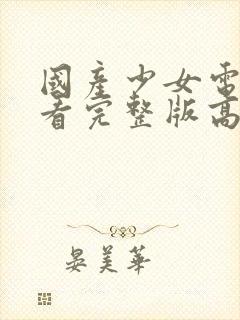 國產少女電
看完整版高
晏美華